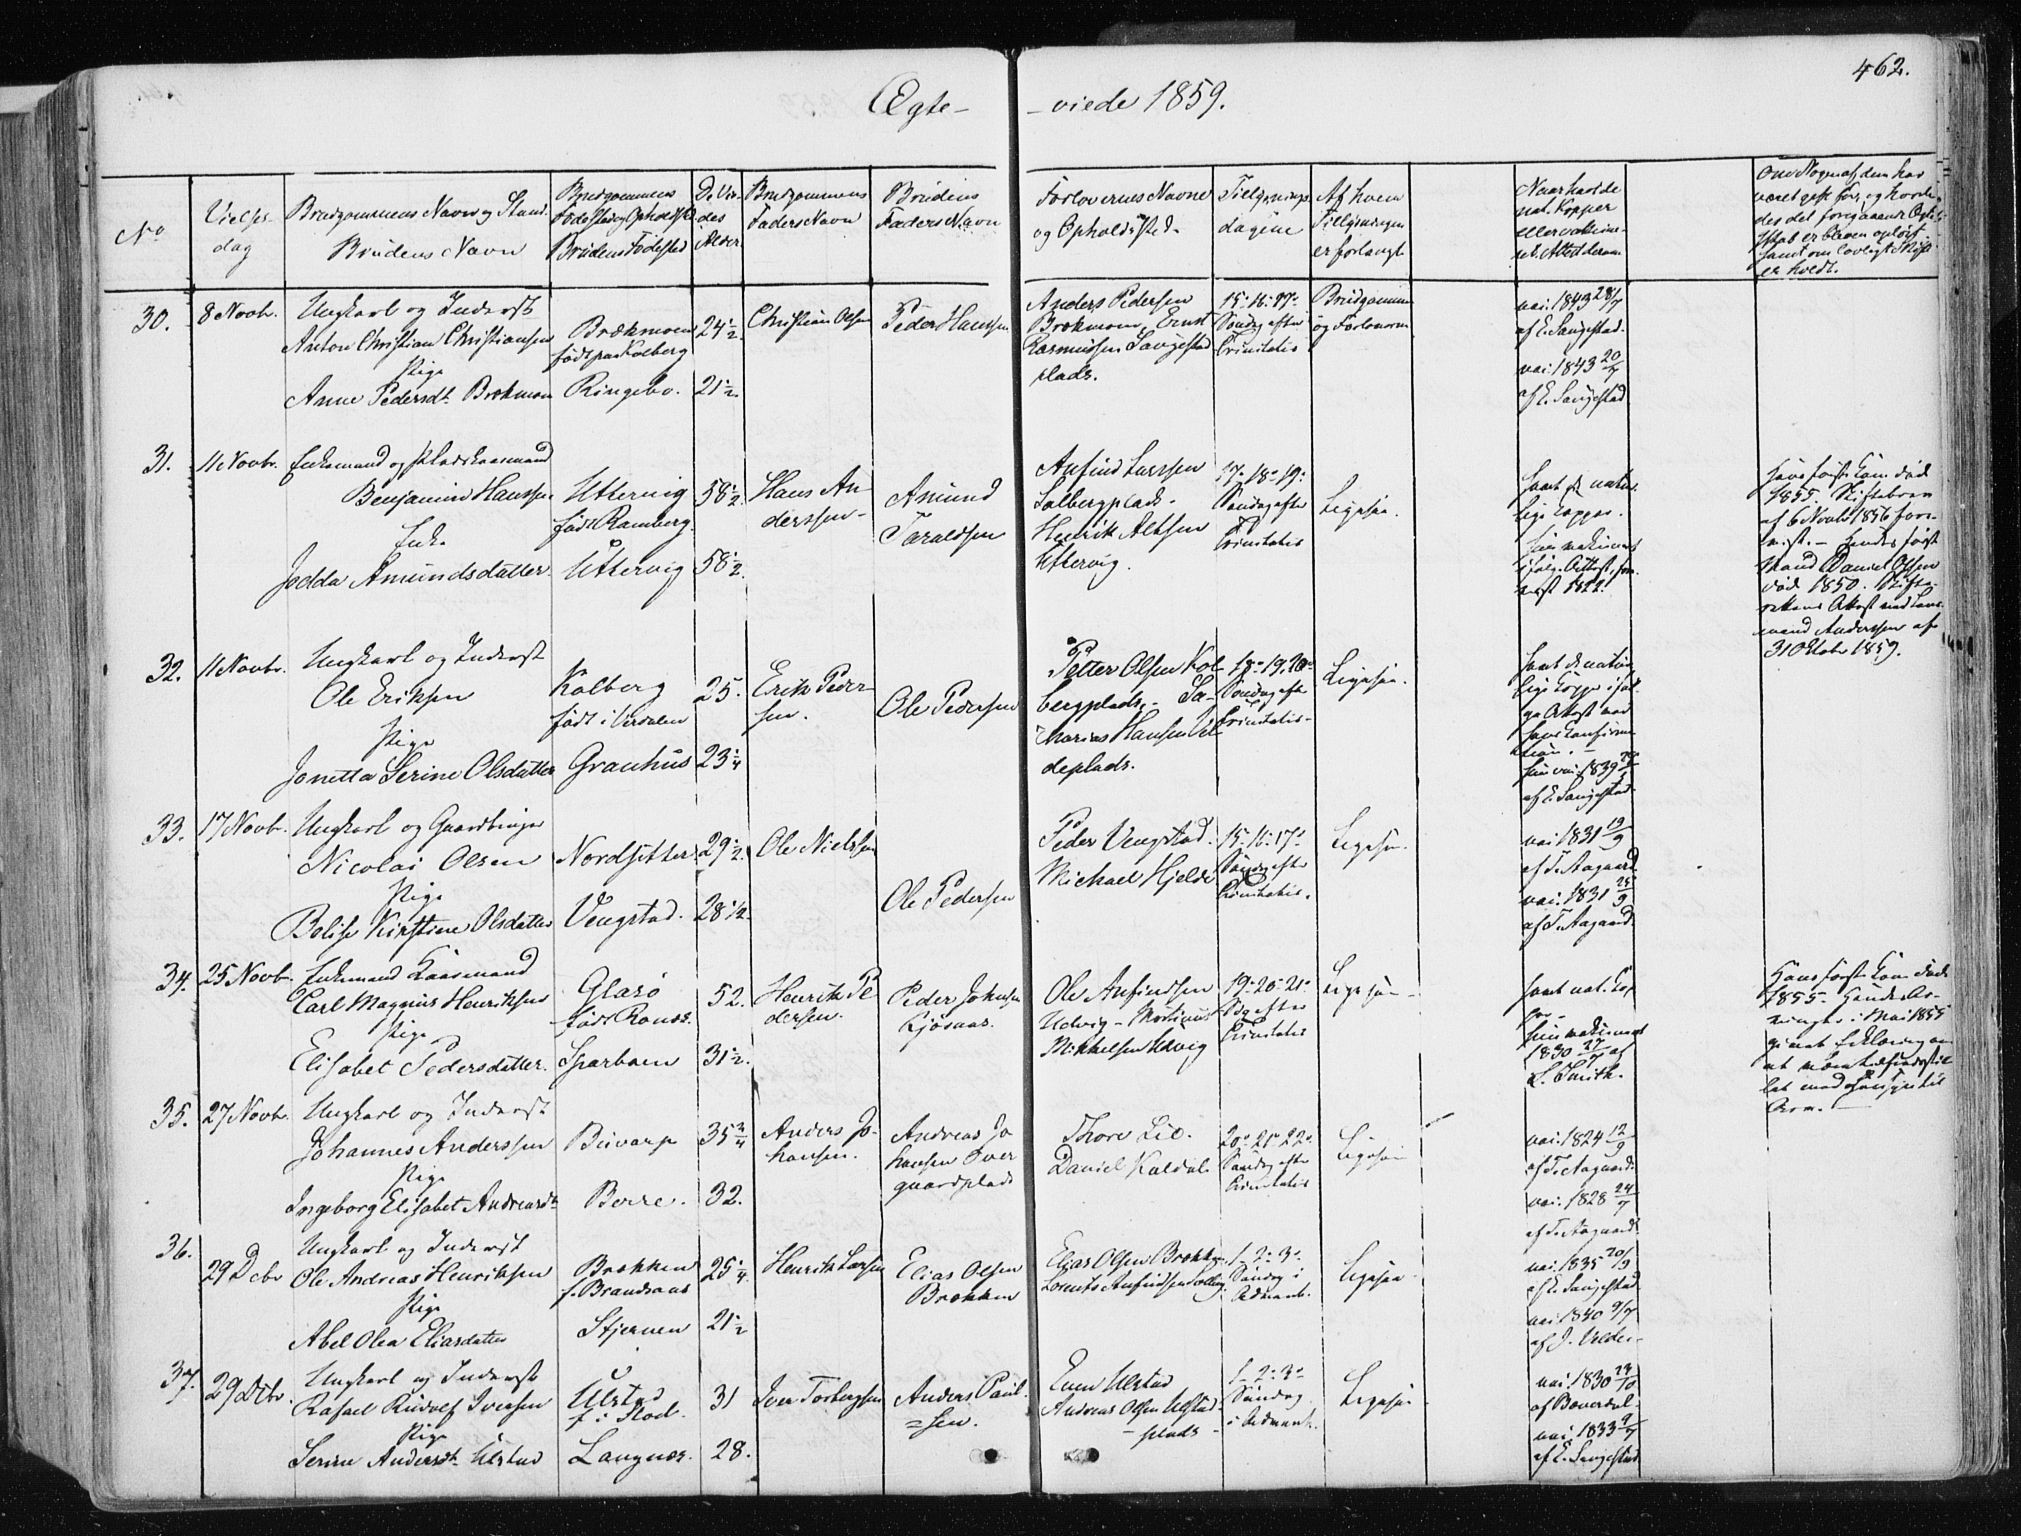 462.
Ægte- -viede 1859.
No
Vielses
dag
Brudgommens Navn og Stand.
Brudens Navn
Brudgommens
Fødested og Opholdsst.
Brudens Fødested
De Vie-
des
Alder
Brudgommens
Faders Navn
Brudens
Faders Navn
Forlovernes Navne
og Opholdssted.
Tillysnings
dagene
Af hvem
Tillysningen
er forlangt
Naar havt de
nat. Kopper
eller vaccine-
ret. Attest derom
Om Nogen af dem har
været gift før, og hvorle-
des det foregaaende Ægte-
skab er bleven opløst
samt om lovligt Skifte
er holdt.
30. 8 Novbr.
Ungkarl og Inderst
Anton Christian Christiansen
Pige
Anne Pedersdt. Brækmoen
Brækmoen
født paa Kolberg
Ringebo.
24 1/2
21 1/2
Christian Olsen
Peder Hanssen
Anders Pedersen
Brækmoen, Ernst
Rasmussen Saugestad
plads.
15- 16- 17-
Søndag efter
Trinitatis
Brudgommen
og Forloverne
vac. 1843 28/7
af E. Saugestad.
vac. 1843 20/7
af E. Saugestad
31. 11 Novbr.
Enkemand og Pladshuusmand
Benjamin Hanssen
Enke
Jedda Amundsdatter.
Uttervig
født Ramberg.
Uttervig
58 1/2
58 1/2
Hans An
derssen-
Amund
Taraldsen
Anfind Larssen
Solbergplads.
Henrik Altsen
Uttervig.
17- 18- 19-
Søndag efter
Trinitatis
Ligesaa.
havt de natur-
lige Kopper.
hun vakcineret
ifølge Attest, fore-
vist 1822.
Hans første Kone død
1855. Skiftebrev
af 6 Novbr 1856 fore-
vist. - Hendes første
Mand Daniel Olsen
død 1850. Skifte-
rettens Attest ved Lens-
mand Anderssen af
31 Oktober 1859.
32. 11 Novbr.
Ungkarl og Inderst
Ole Eriksen
Pige
Jonetta Serine Olsdatter
Kolberg
født i Verdalen
Granhus
25.
23 1/4
Erik Peder-
sen.
Ole Pedersen
Petter Olsen Kol-
bergplads,- Za-
charias Hansen Vil
deplads.
18- 19. 20de
Søndag efter
Trinitatis-
Ligesaa.
havt de natur-
lige Kopper iføl-
ge Attest ved
hans Konfirma-
tion.-
hun vac. 1839
af E. Saugestad
33. 17 Novbr.
Ungkarl og Gaardbruger
Nicolai Olsen
Pige
Bolise Kirstine Olsdatter
Nordsetter
Vengstad.
29 1/2.
28 1/2.
Ole Nielssen
Ole Pedersen
Peder Vengstad.
Michael Hjelde
15- 16- 17-
Søndag efter
Trinitatis.
Ligesaa.
vac. 1831 19/9
af T. Aagaard
vac. 1831 25/9
af T. Aagaard
34. 25 Novbr.
Enkemand Huusmand
Carl Magnus Henriksen
Pige
Elisabet Pedersdatter.
Glasø
født Ranes.
Sparboen
52.
31 1/2.
Henrik Pe
dersen.
Peder Johnsen
Kjøsnæs.
Ole Anfindsen
Udvig - Martinus
Mikkelsen Utvig
19- 20- 21-
Sdg efter
Trinitatis
Ligesaa-
havt nat. Kop
per-
hun vakcineret
1830 27/7 af
L. Smith.
Hans første Kone død
1855. Hendes Ar-
vinger i Mai 1855
35. 27 Novbr.
Ungkarl og Inderst
Johannes Anderssen
Pige
Ingeborg Elisabet Andreasdt.
Buvarp
Borre.
35 3/4
32.
Anders Jo-
hansen.
Andreas Jo
hansen Over
gaardplads
Thore Lie.
Daniel Kaldal.
20- 21- 22-
Søndag efter
Trinitatis
Ligesaa
vac. 1824 12/9
af T. Aagaard.
vac. 1828 24/7
af T. Aagaard.
36.
29 Dcbr
Ungkarl og Inderst
Ole Andreas Henriksen
Pige
Abel Olea Eliasdatter
Brækken
f. Brandsaas
Stjernen
25 1/4.
21 1/2
Henrik Larsen
Elias Olsen
Brækken
Elias Olsen Brækken
Lorents Anfindsen Solberg
1- 2- 3-
Søndag i
Advent.
Ligesaa
vac. 1835 20/9
af E. Saugestad
vac. 1840 9/7
af J. Velde-
37. 29 Dcbr.
Ungkarl og Inderst
Rafael Rudolf Iversen
Pige
Serine Andersdt. Ulstad
Ulstad
f. i Stod.
Langnæs.
31
28.
Iver Torbergsen
Anders Paul-
=sen.
Even Ulstad
Andreas Olsen Ulstad-
- plads -
1- 2- 3-
Søndag
i Advent.
Ligesaa
vac. 1830 28/10
af Bæverdal.
vac. 1833 9/7
af E. Saugestad